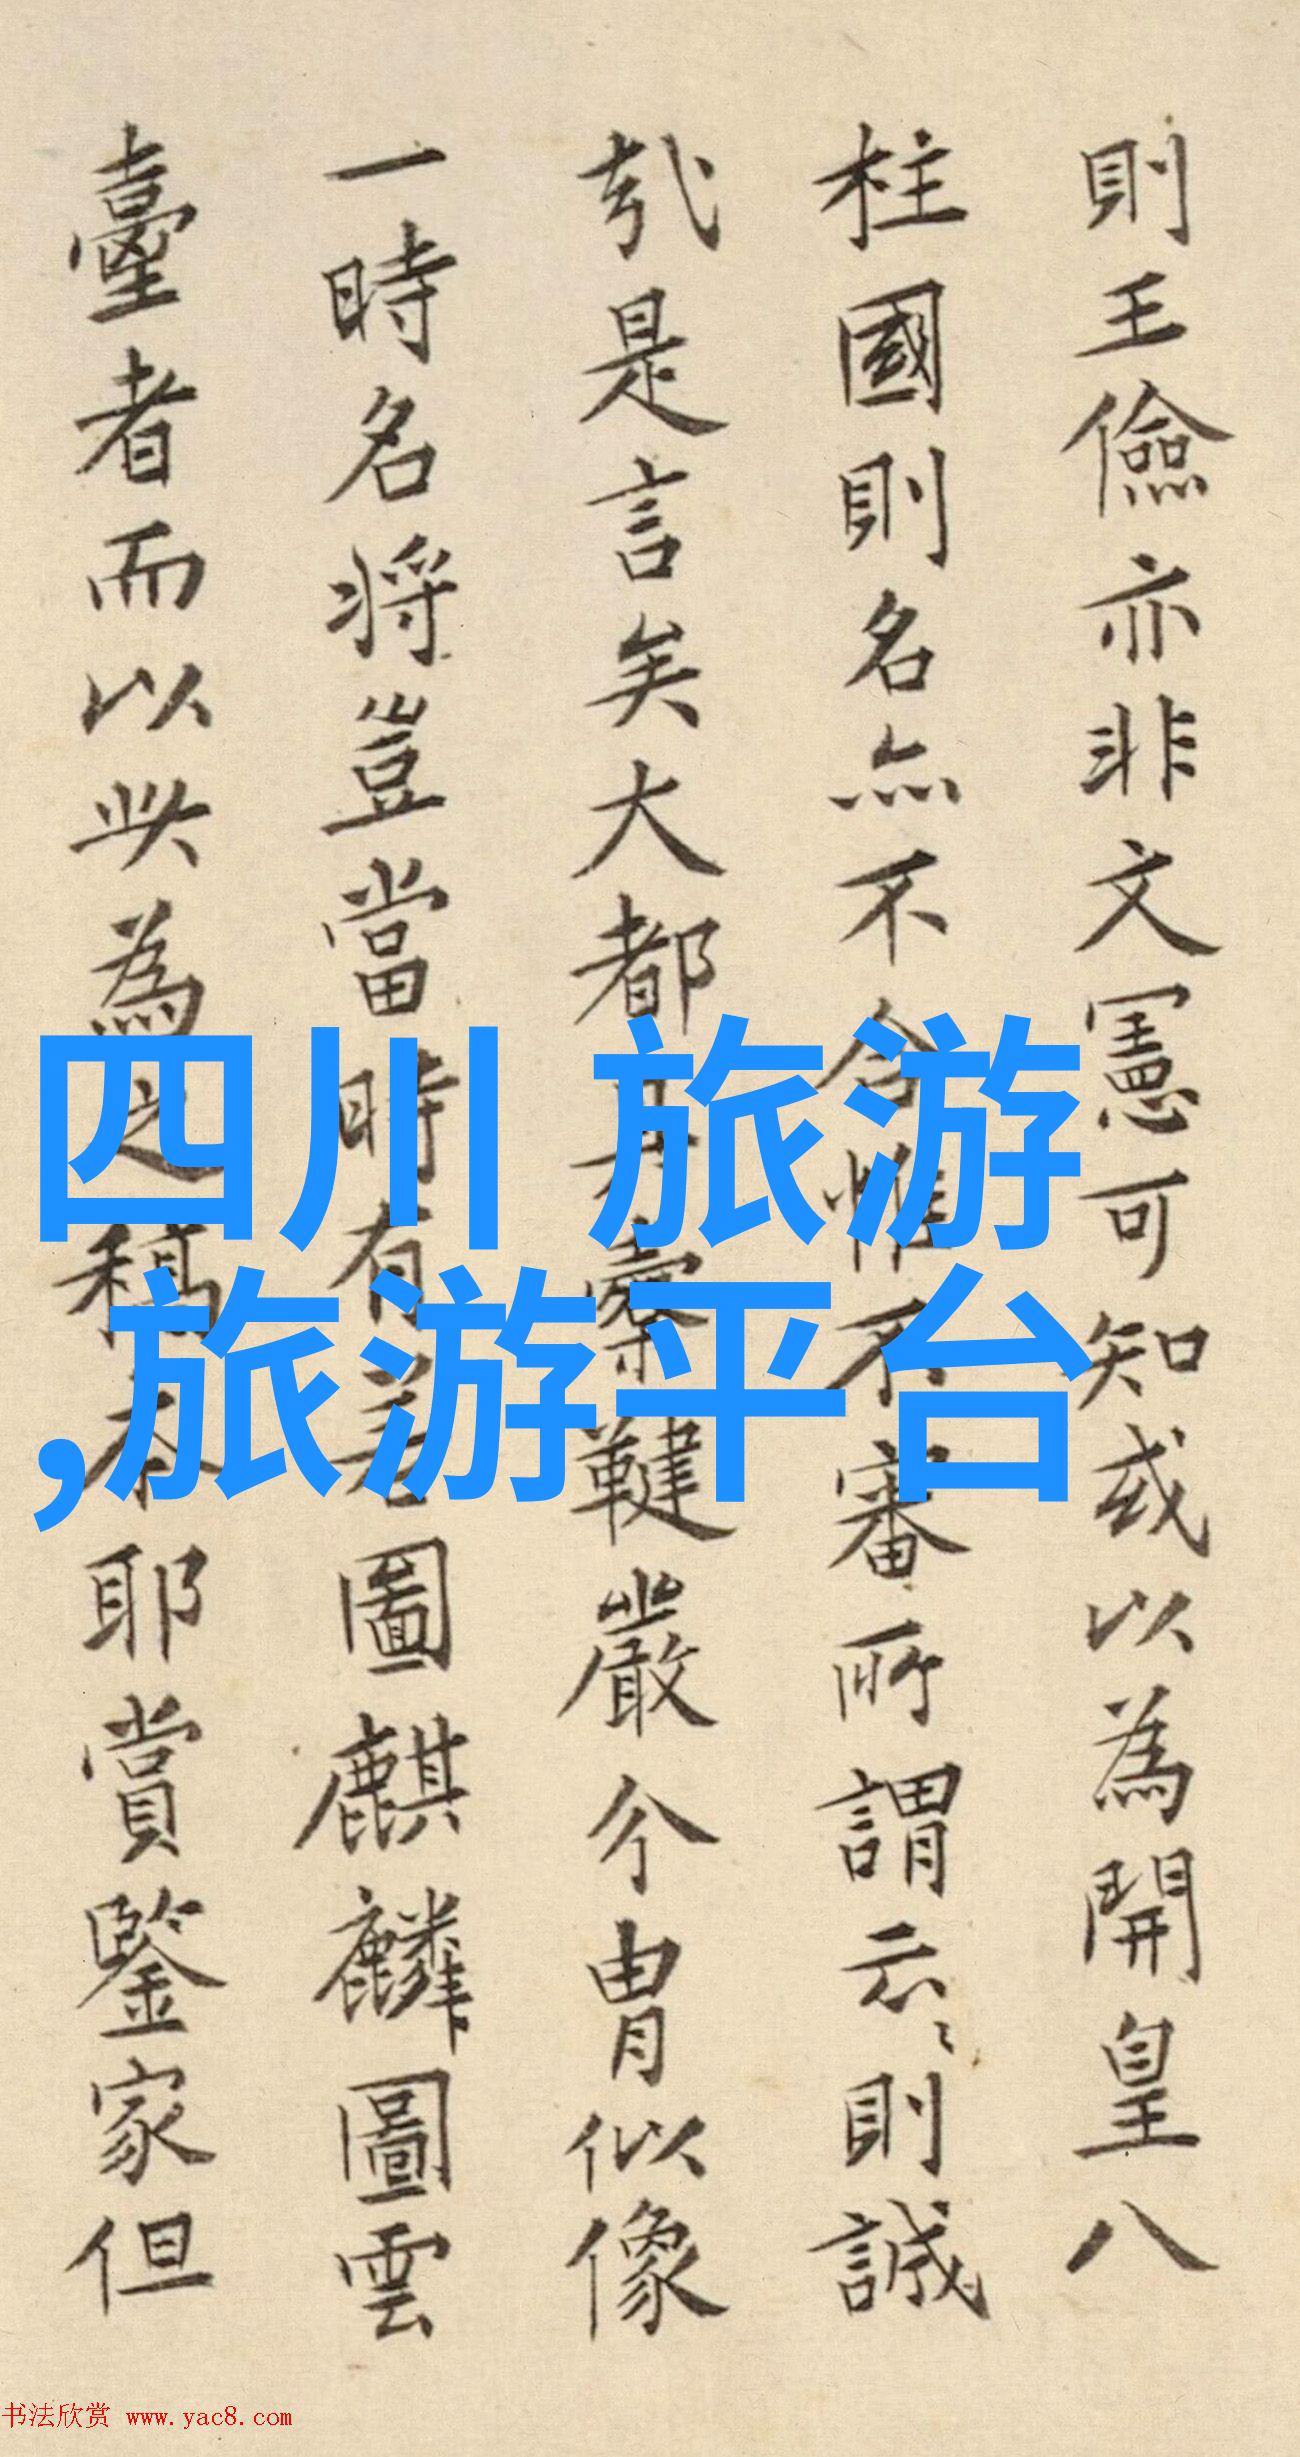 則王儉亦非文憲可知或以為開皇八
柱國則名亦不合惟不審所謂云〻則誠
哉是言矣大都櫜鞬嚴介胄似像
一時名將豈當時有善圖麒麟圖雲
臺者而以此為之稿本耶賞鑒家但
四川 旅游
,旅游平台
书法欣赏 www.yac8.com